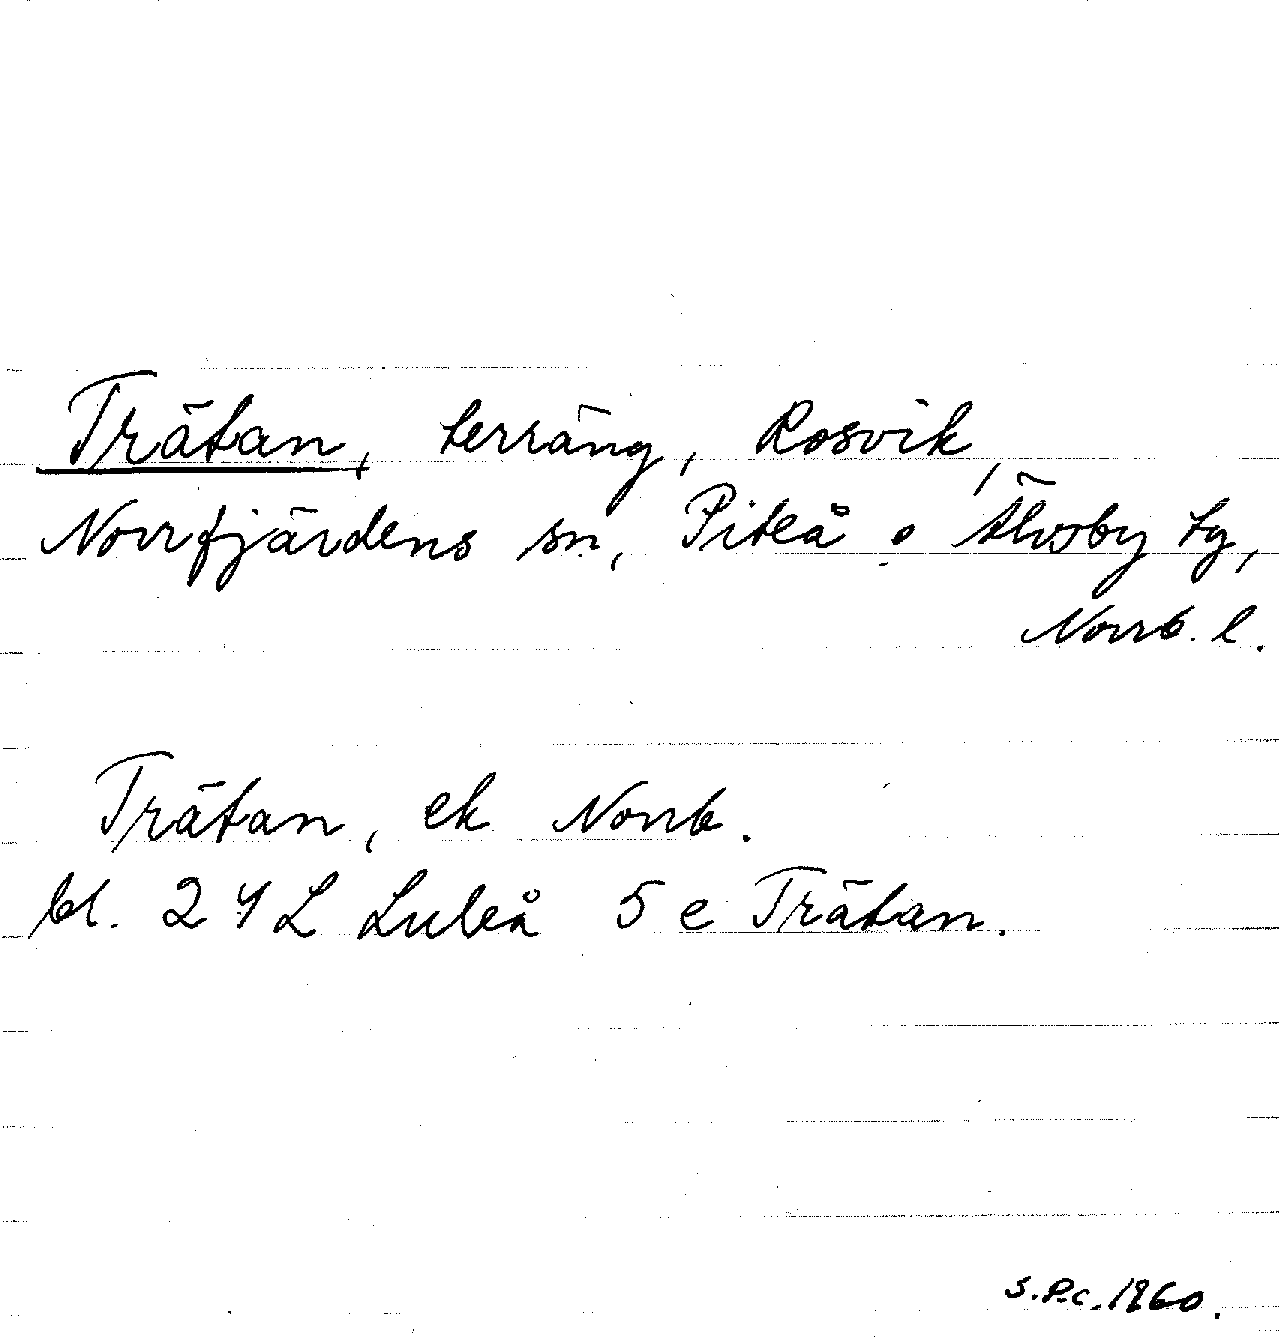 Trätan, terräng, Rosvik,
Norrfjärdens sn, Piteå o Älvsby tg,
Norrb. l.
Trätan, ek Norrb.
bl. 24 L Luleå 5 e Trätan.
S.P.c. 1960.